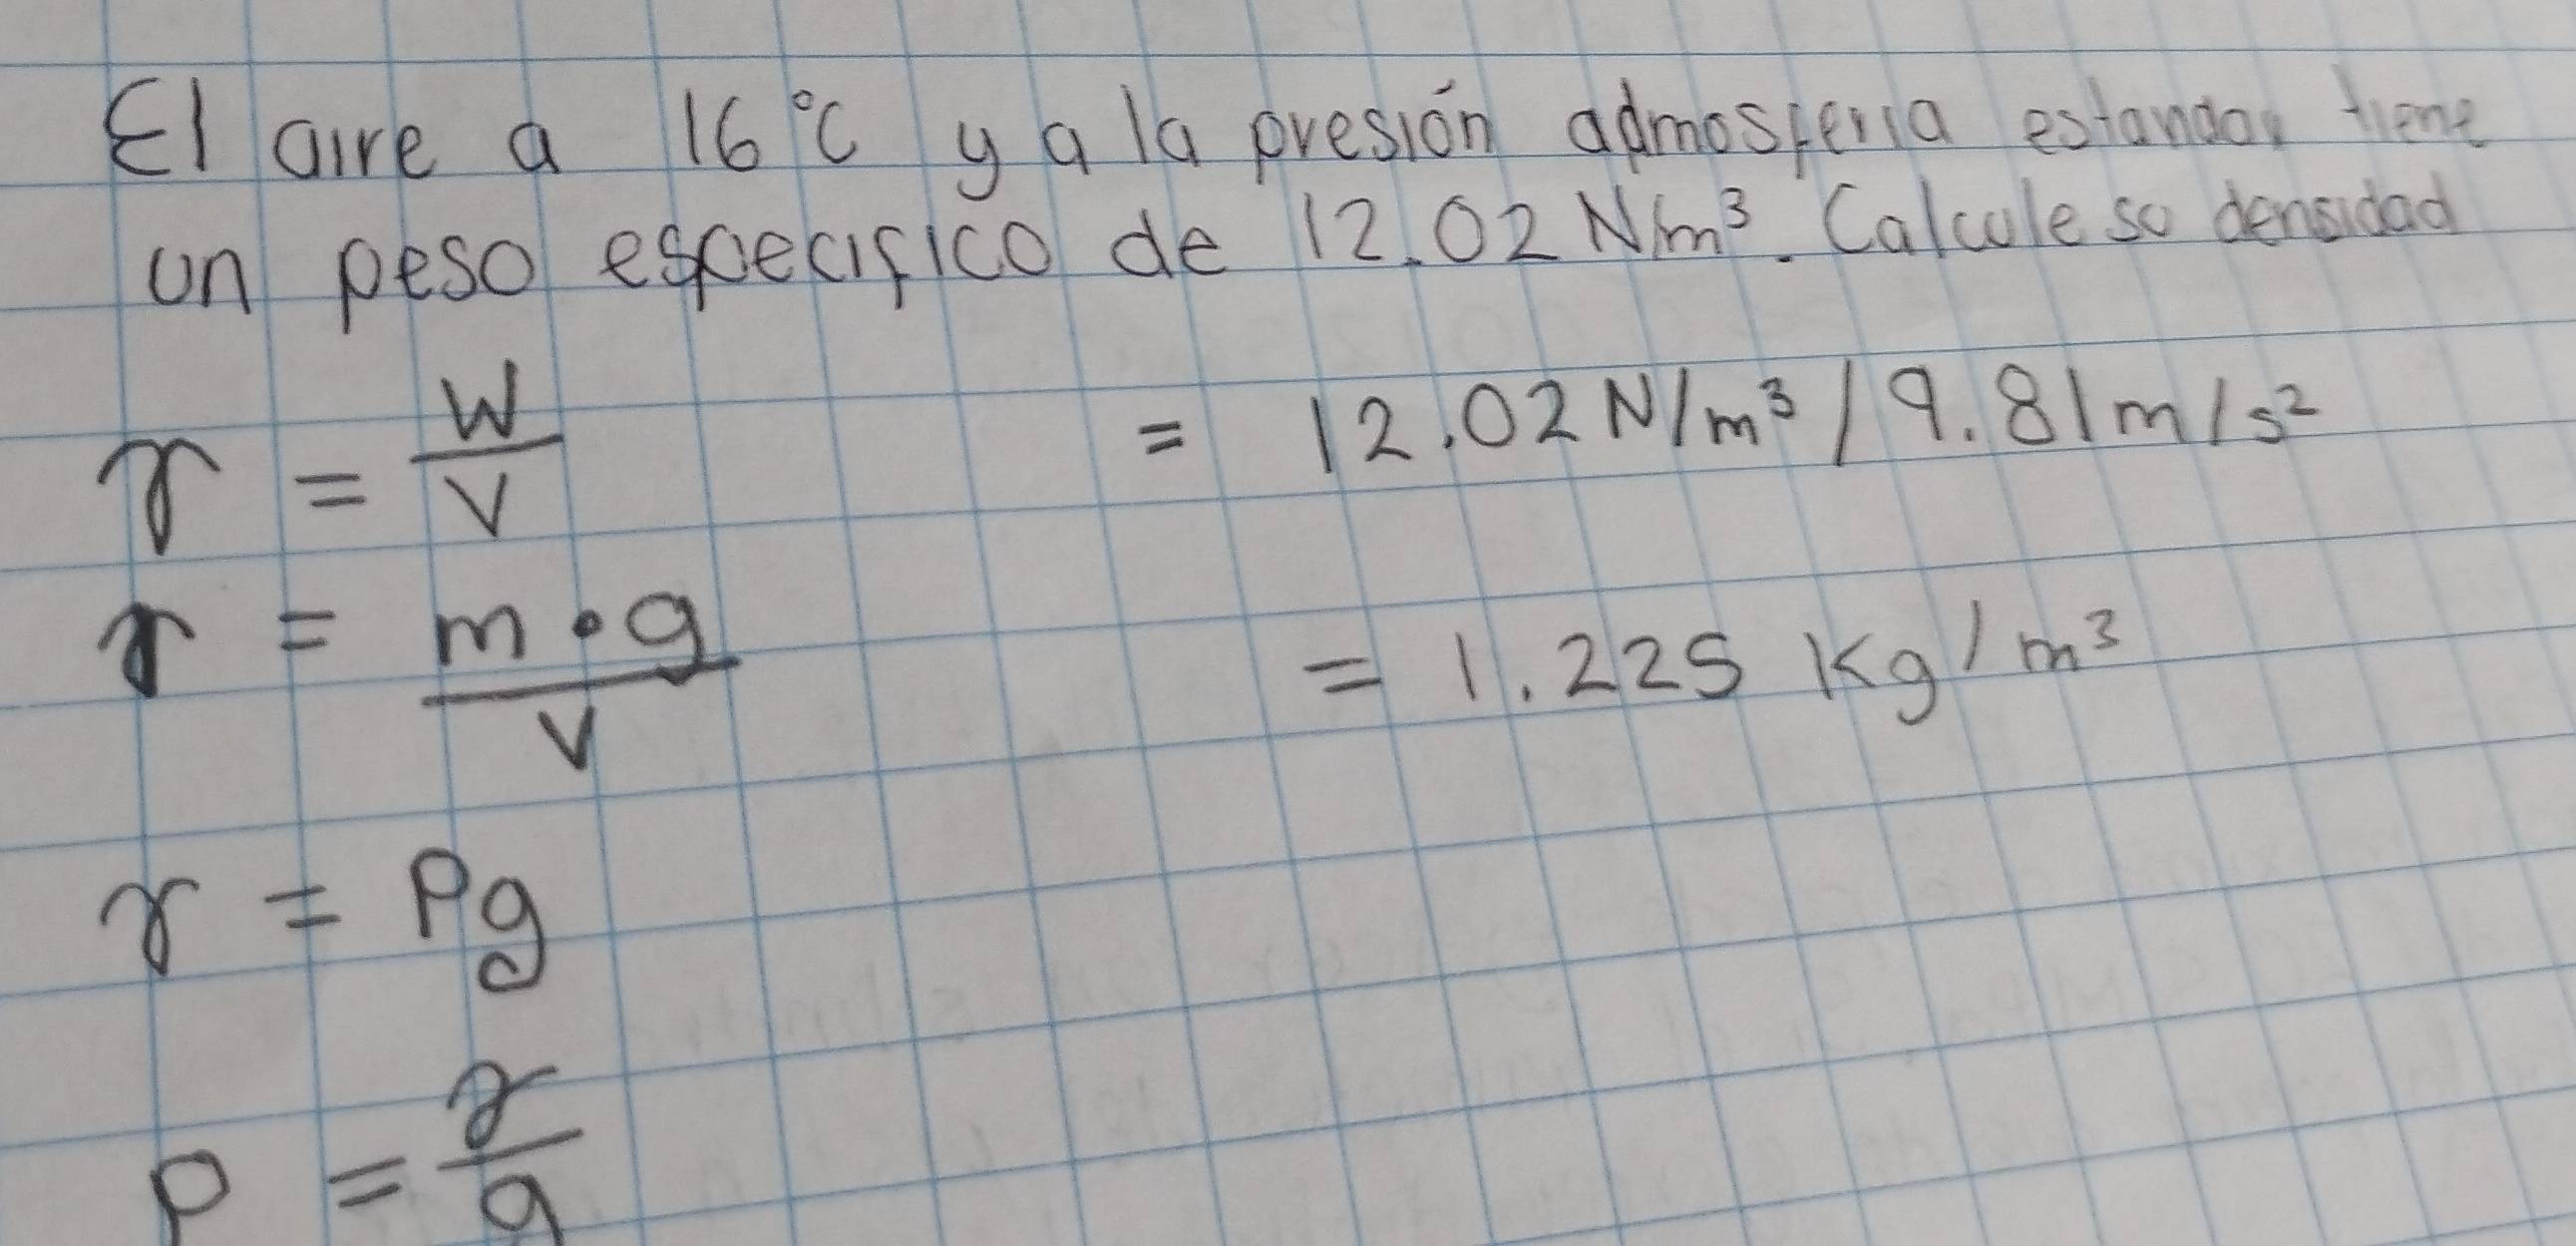 El aire a 16°C y a la presión admosferia estandar tiene
un peso especifico de 12.02 N/m³. Calcule so densidad
γ = W/V
= 12.02 N/m³ / 9.81 m/s²
γ = m•g/V
= 1.225 Kg/m³
γ = Pg
ρ = γ/g